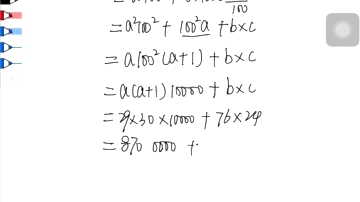 100
= a²100² + 100²a + b×c
= a100²(a+1) + b×c
= a(a+1)10000 + b×c
= 29×30×10000 + 76×24
= 870 0000 +